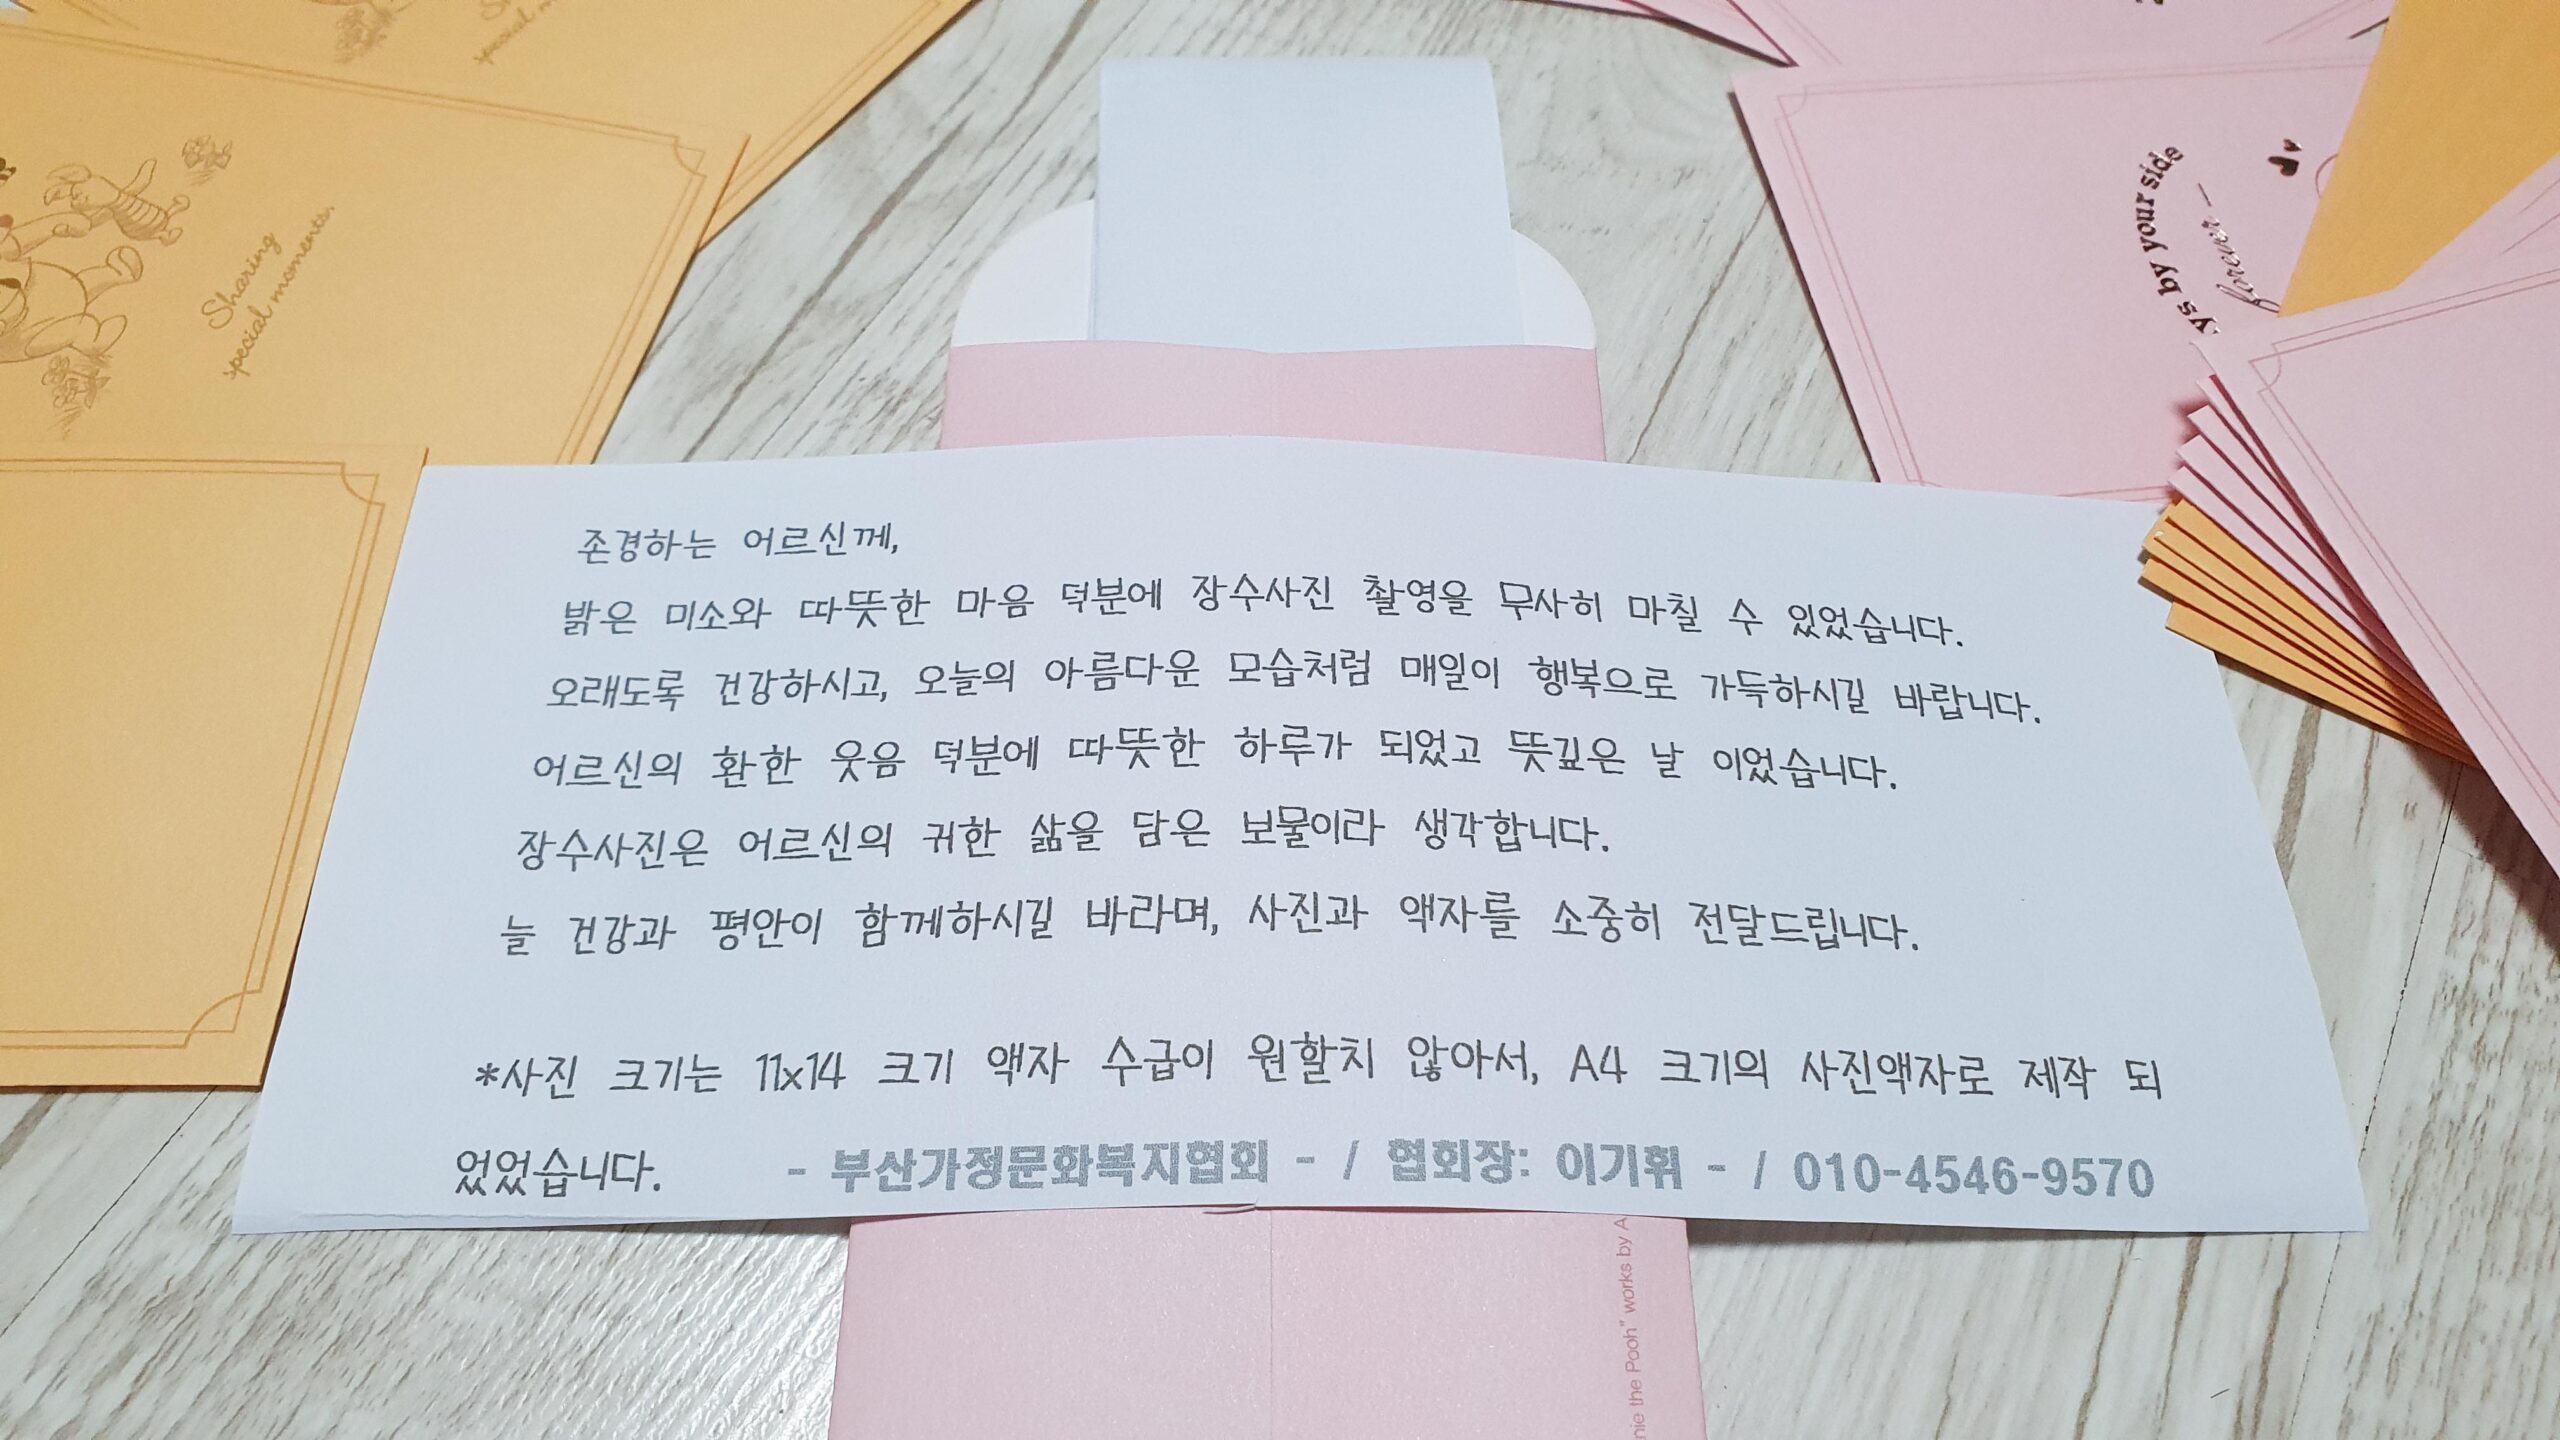 Sharing
special moments.
ys by your side
forever
존경하는 어르신께,
밝은 미소와 따뜻한 마음 덕분에 장수사진 촬영을 무사히 마칠 수 있었습니다.
오래도록 건강하시고, 오늘의 아름다운 모습처럼 매일이 행복으로 가득하시길 바랍니다.
어르신의 환한 웃음 덕분에 따뜻한 하루가 되었고 뜻깊은 날 이었습니다.
장수사진은 어르신의 귀한 삶을 담은 보물이라 생각합니다.
늘 건강과 평안이 함께하시길 바라며, 사진과 액자를 소중히 전달드립니다.
*사진 크기는 11x14 크기 액자 수급이 원할치 않아서, A4 크기의 사진액자로 제작 되
었었습니다. - 부산가정문화복지협회 - / 협회장: 이기휘 - / 010-4546-9570
nie the Pooh" works by A